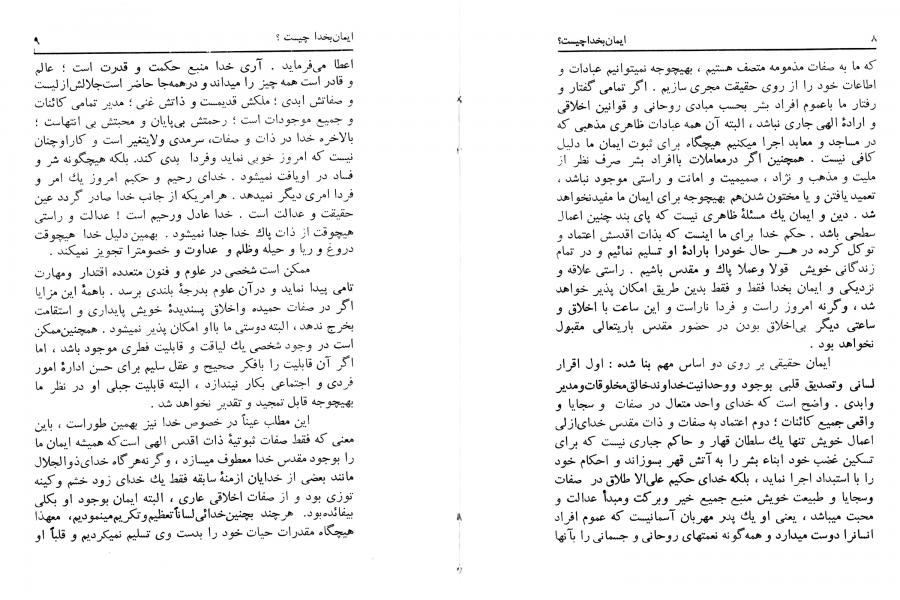 ۸
ایمان‌بخدا چیست؟
که ما به صفات مذمومه متصف هستیم ، بهیچوجه نمیتوانیم عبادات و
اطاعات خود را از روی حقیقت مجری سازیم . اگر تمامی گفتار و
رفتار ما باعموم افراد بشر بحسب مبادی روحانی و قوانین اخلاقی
و ارادهٔ الهی جاری نباشد ، البته آن همه عبادات ظاهری مذهبی که
در مساجد و معابد اجرا میکنیم هیچگاه برای ثبوت ایمان ما دلیل
کافی نیست . همچنین اگر درمعاملات باافراد بشر صرف نظر از
ملیت و مذهب و نژاد ، صمیمیت و امانت و راستی موجود نباشد ،
تعمید یافتن و یا مختون شدن‌هم بهیچوجه برای ایمان ما مفیدنخواهد
شد . دین و ایمان یك مسئلهٔ ظاهری نیست که پای بند چنین اعمال
سطحی باشد . حکم خدا برای ما اینست که بذات اقدسش اعتماد و
توکل کرده در هر حال خودرا بارادهٔ او تسلیم نمائیم و در تمام
زندگانی خویش قولا وعملا پاك و مقدس باشیم . راستی علاقه و
نزدیکی و ایمان بخدا فقط و فقط بدین طریق امکان پذیر خواهد
شد ، وگرنه امروز راست و فردا ناراست و این ساعت با اخلاق و
ساعتی دیگر بی‌اخلاق بودن در حضور مقدس باریتعالی مقبول
نخواهد بود .
ایمان حقیقی بر روی دو اساس مهم بنا شده : اول اقرار
لسانی وتصدیق قلبی بوجود ووحدانیت‌خداوندخالق‌مخلوقات‌ومدیر
وابدی . واضح است که خدای واحد متعال در صفات و سجایا و
واقعی جمیع کائنات ؛ دوم اعتماد به صفات و ذات مقدس خدای‌ازلی
اعمال خویش تنها یك سلطان قهار و حاکم جباری نیست که برای
تسکین غضب خود ابناء بشر را به آتش قهر بسوزاند و احکام خود
را با استبداد اجرا نماید ، بلکه خدای حکیم علی‌الا طلاق در صفات
وسجایا و طبیعت خویش منبع جمیع خیر وبرکت ومبدأ عدالت و
محبت میباشد ، یعنی او یك پدر مهربان آسمانیست که عموم افراد
انسانرا دوست میدارد و همه‌گونه نعمتهای روحانی و جسمانی را بآنها
ایمان‌بخدا چیست ؟
۹
اعطا می‌فرماید . آری خدا منبع حکمت و قدرت است ؛ عالم
و قادر است همه چیز را میداند و درهمه‌جا حاضر است‌جلالش‌ازلیست
و صفاتش ابدی ؛ ملکش قدیمست و ذاتش غنی ؛ مدیر تمامی کائنات
و جمیع موجودات است ؛ رحمتش بی‌پایان و محبتش بی انتهاست ؛
بالاخره خدا در ذات و صفات، سرمدی ولایتغیر است و کاراوچنان
نیست که امروز خوبی نماید وفردا بدی کند. بلکه هیچگونه شر و
فساد در اویافت نمیشود . خدای رحیم و حکیم امروز یك امر و
فردا امری دیگر نمیدهد . هرامریکه از جانب خدا صادر گردد عین
حقیقت و عدالت است . خدا عادل ورحیم است ! عدالت و راستی
هیچوقت از ذات پاك خدا جدا نمیشود . بهمین دلیل خدا هیچوقت
دروغ و ریا و حیله وظلم و عداوت و خصومترا تجویز نمیکند .
ممکن است شخصی در علوم و فنون متعدده اقتدار ومهارت
تامی پیدا نماید و درآن علوم بدرجهٔ بلندی برسد . باهمهٔ این مزایا
اگر در صفات حمیده واخلاق پسندیدهٔ خویش پایداری و استقامت
بخرج ندهد ، البته دوستی ما بااو امکان پذیر نمیشود . همچنین‌ممکن
است در وجود شخصی یك لیاقت و قابلیت فطری موجود باشد ، اما
اگر آن قابلیت را بافکر صحیح و عقل سلیم برای حسن ادارهٔ امور
فردی و اجتماعی بکار نیندازد ، البته قابلیت جبلی او در نظر ما
بهیچوجه قابل تمجید و تقدیر نخواهد شد .
این مطلب عیناً در خصوص خدا نیز بهمین طوراست ، باین
معنی که فقط صفات ثبوتیهٔ ذات اقدس الهی است‌که همیشه ایمان ما
را بوجود مقدس خدا معطوف میسازد ، وگرنه‌هرگاه خدای‌ذوالجلال
مانند بعضی از خدایان ازمنهٔ سابقه فقط یك خدای زود خشم وکینه
توزی بود و از صفات اخلاقی عاری ، البته ایمان بوجود او بکلی
بیفائده‌بود. هرچند بچنین‌خدائی‌لساناً‌تعظیم‌وتکریم‌مینمودیم، معهذا
هیچگاه مقدرات حیات خود را بدست وی تسلیم نمیکردیم و قلباً او